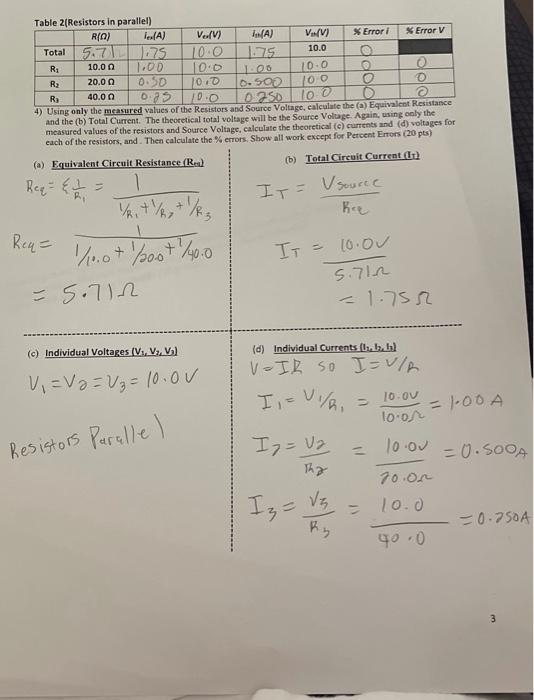 Table 2(Resistors in parallel)
R(Ω) Iex(A) Vex(V) Ith(A) Vth(V) % Error i % Error V
Total 5.71 1.75 10.0 1.75 10.0 0
R₁ 10.0 Ω 1.00 10.0 1.00 10.0 0 0
R₂ 20.0 Ω 0.50 10.0 0.500 10.0 0 0
R₃ 40.0 Ω 0.25 10.0 0.250 10.0 0 0
4) Using only the measured values of the Resistors and Source Voltage, calculate the (a) Equivalent Resistance
and the (b) Total Current. The theoretical total voltage will be the Source Voltage. Again, using only the
measured values of the resistors and Source Voltage, calculate the theoretical (c) currents and (d) voltages for
each of the resistors, and . Then calculate the % errors. Show all work except for Percent Errors (20 pts)
(a) Equivalent Circuit Resistance (Req)
Req = Σ 1/R₁ = 1 / (1/R₁ + 1/R₂ + 1/R₃)
Req = 1 / (1/10.0 + 1/20.0 + 1/40.0)
= 5.71Ω
(b) Total Circuit Current (IT)
IT = Vsource / Req
IT = 10.0V / 5.71Ω
= 1.75Ω
(c) Individual Voltages (V₁, V₂, V₃)
V₁ = V₂ = V₃ = 10.0V
Resistors Parallel
(d) Individual Currents (I₁, I₂, I₃)
V = IR so I = V/R
I₁ = V₁/R₁ = 10.0V / 10.0Ω = 1.00 A
I₂ = V₂ / R₂ = 10.0V / 20.0Ω = 0.500A
I₃ = V₃ / R₃ = 10.0 / 40.0 = 0.250A
3